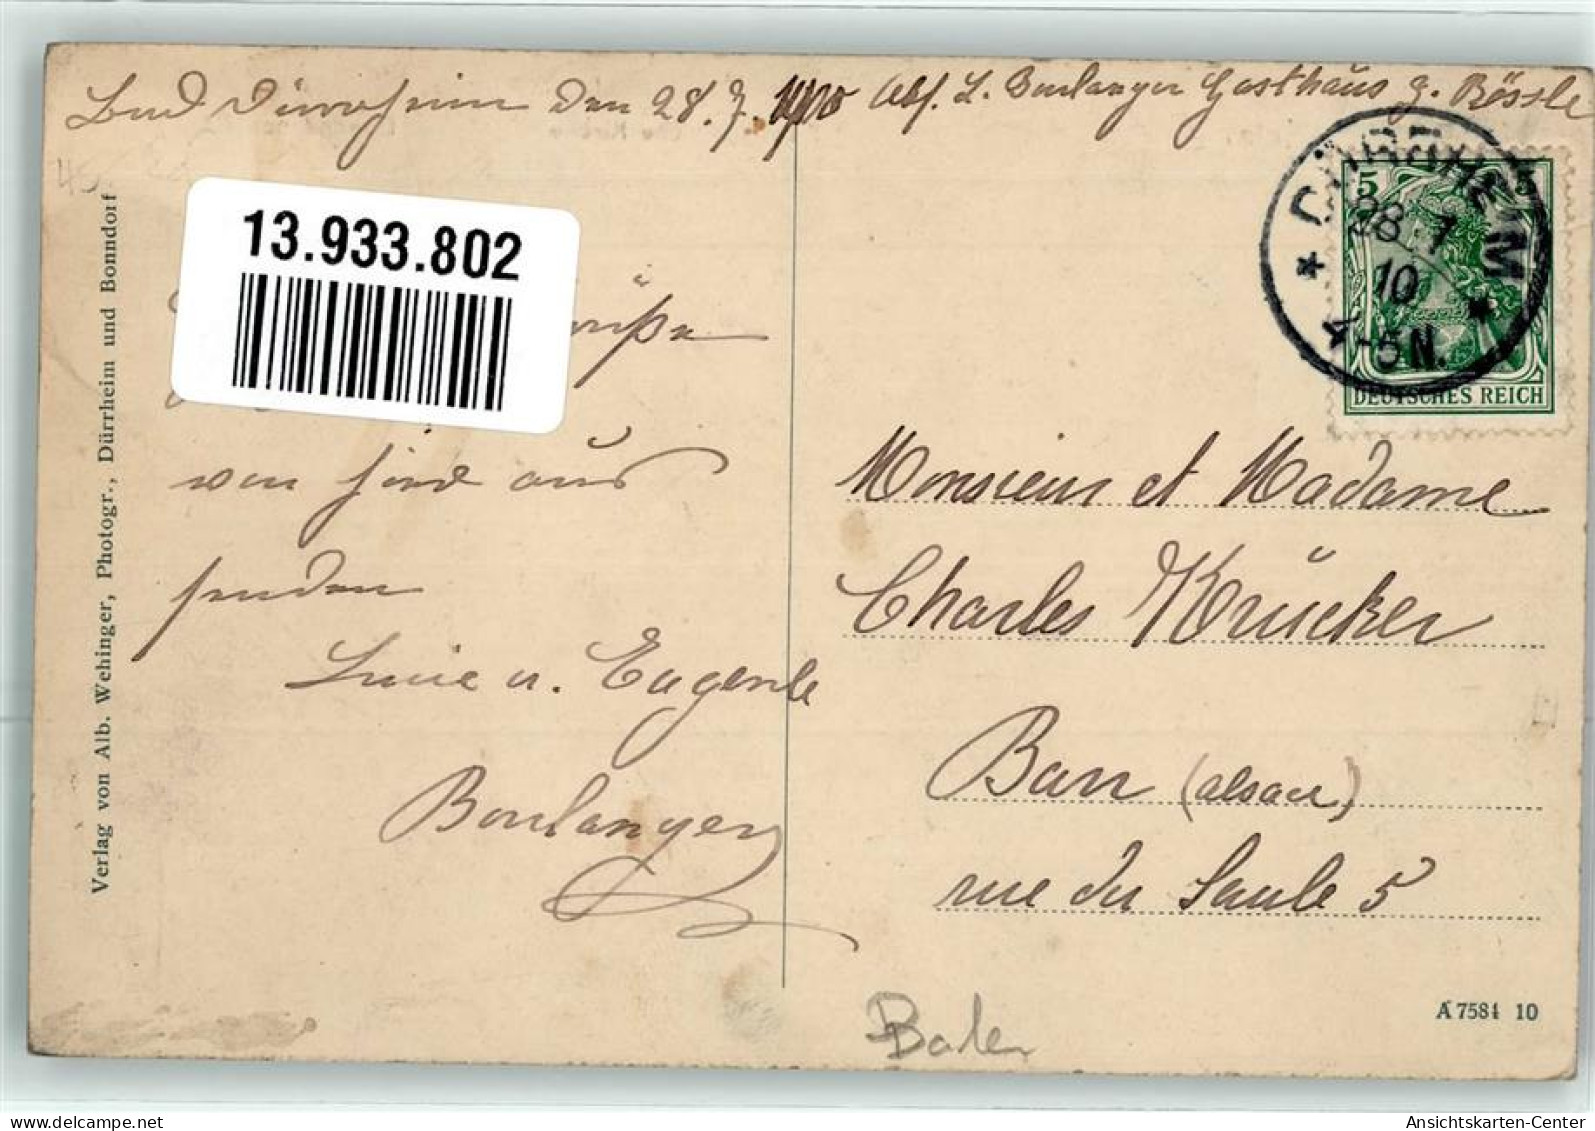 Bad Dürrheim den 28. 7. 1910 Abs. L. Boulanger Gasthaus z. Rössle
13.933.802
Grüße
von hier aus
senden
Lucie u. Eugenie
Boulanger
Verlag von Alb. Wehinger, Photogr., Dürrheim und Bonndorf
DÜRRHEIM
28 7
10
4-5N.
5 5
DEUTSCHES REICH
Monsieur et Madame
Charles Krücker
Barr (alsace)
rue du Saule 5
A 7584 10
Baden
Ansichtskarten-Center